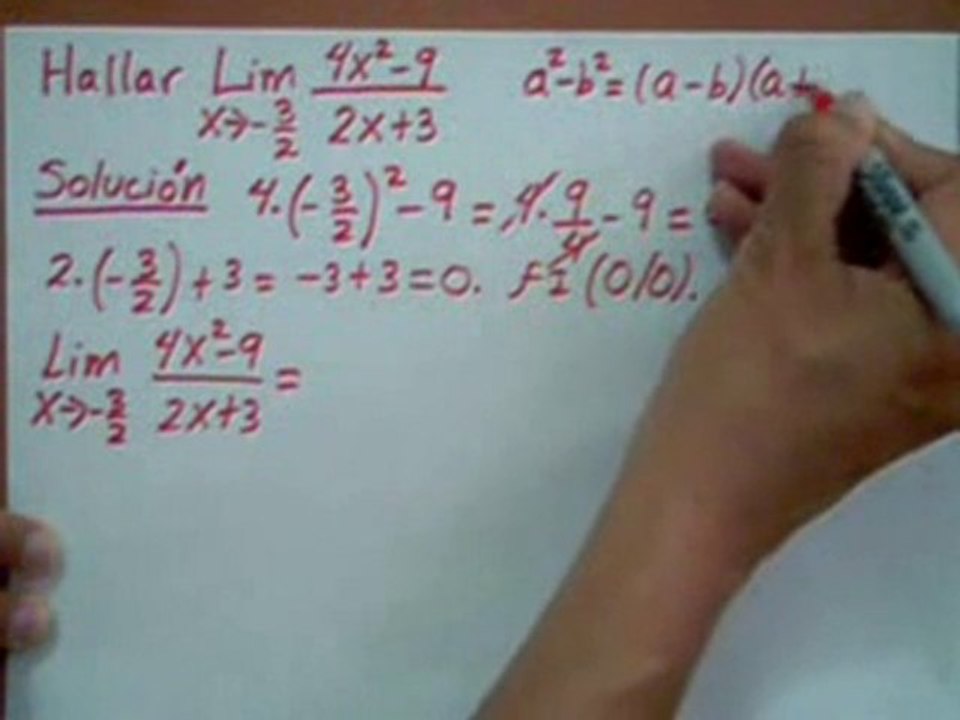 Hallar Lim 4x²-9 / 2x+3 a²-b²=(a-b)(a+
x→-3/2
Solución 4·(-3/2)²-9=4·9/4-9=
2·(-3/2)+3=-3+3=0. FI(0/0).
Lim 4x²-9 / 2x+3 =
x→-3/2